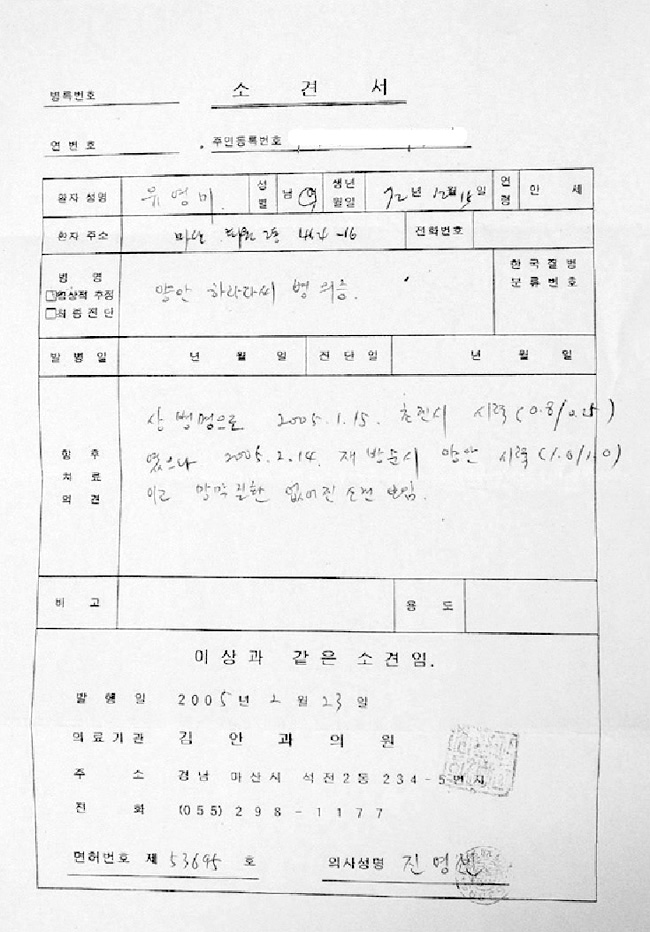 병록번호
소 견 서
연 번 호
주민등록번호
환자 성명 유영미 성별 남 여 생년월일 72년 12월 15일 연령 만 세
환자 주소 마산 2동 464-16 전화번호
병 명 양안 하라다씨 병 의증. 한국질병
□임상적 추정 분류번호
□최종진단
발 병 일 년 월 일 진 단 일 년 월 일
상 병명으로 2005.1.15. 초진시 시력(0.8/0.25)
향 후 였으나 2005.2.14. 재 방문시 양안 시력(1.0/1.0)
치 료
의 견 이고 망막질환 없어진 소견 보임.
비 고 용 도
이상과 같은 소견임.
발 행 일 2005년 2월 23일
의료기관 김안과의원
주 소 경남 마산시 석전2동 234-5번지
전 화 (055)298-1177
면허번호 제 53695 호 의사성명 진영